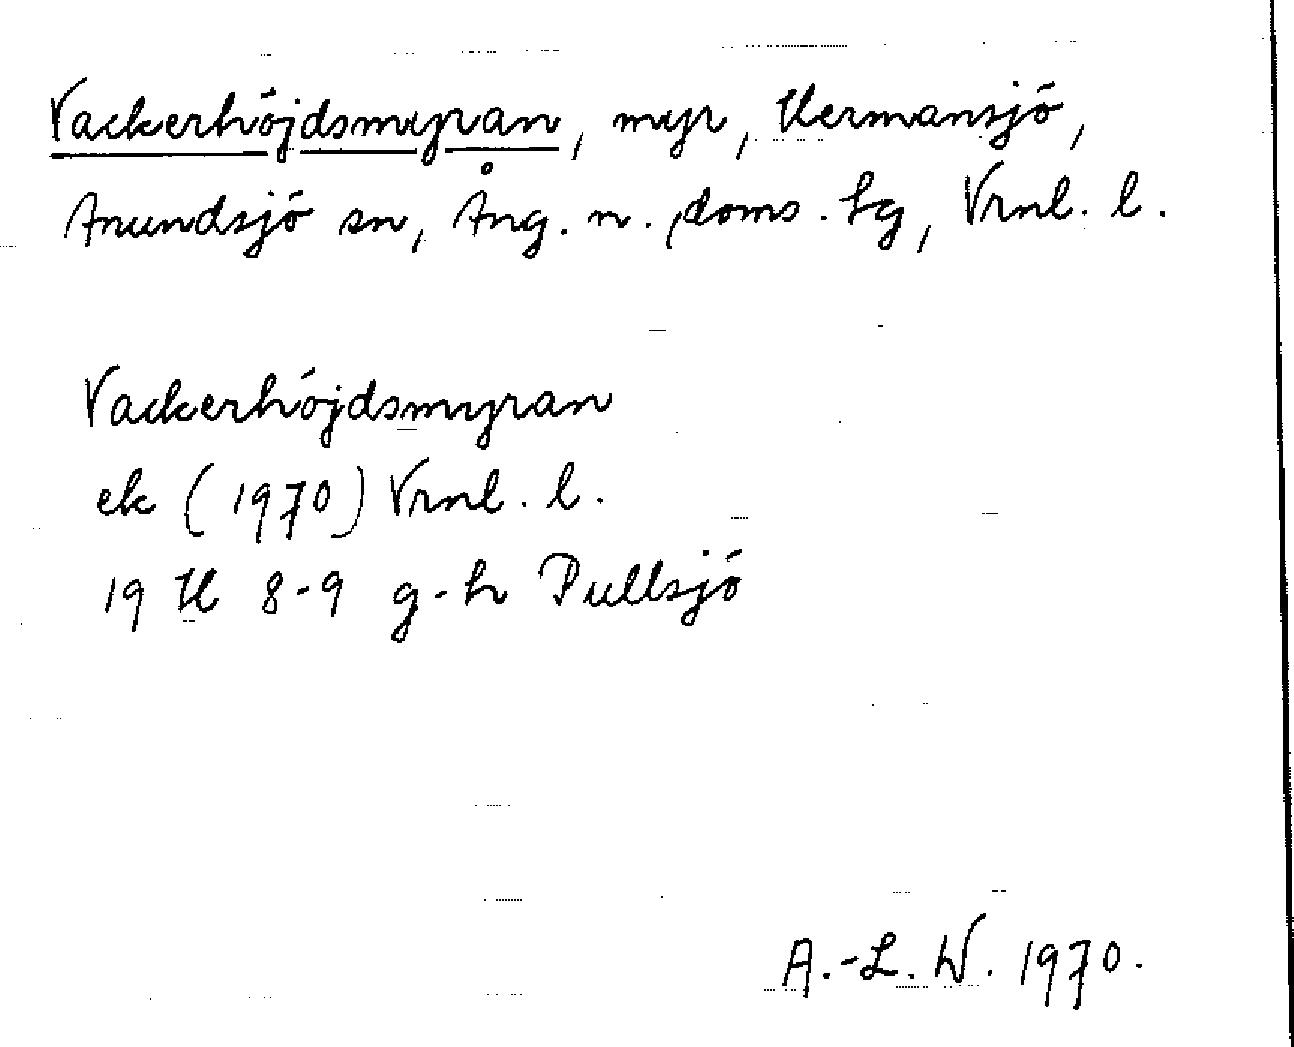 Vackerhöjdsmyran, myr, Hermansjö,
Anundsjö sn, Ång. n. doms. tg, Vrnl. l.
Vackerhöjdsmyran
ek (1970) Vrnl. l.
19 H 8-9 g-h Pullsjö
A.-L. W. 1970.